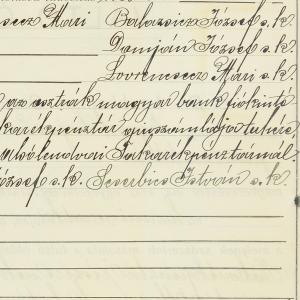 Mari Balazsicz József s. k.
Damján József s. k.
Lovrenecz Mari s. k.
az osztrák magyar bank fiókinté
takarékpénztár gyuszámlája terhére
alsólendvai Takarékpénztárnál
József s. k. Seserbics István s. k.